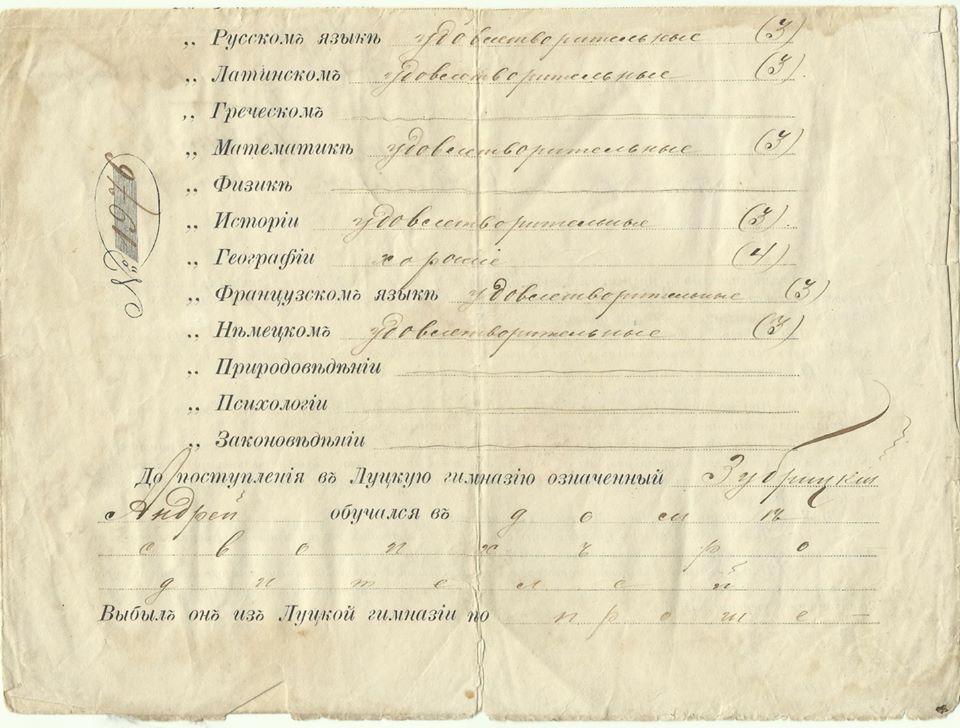 „ Русскомъ языкѣ удовлетворительные (3)
„ Латинскомъ удовлетворительные (3).
„ Греческомъ
„ Математикѣ удовлетворительные (3)
„ Физикѣ
„ Исторіи удовлетворительные (3).
„ Географіи хорошіе (4)
„ Французскомъ языкѣ удовлетворительные (3)
„ Нѣмецкомъ удовлетворительные (3)
„ Природовѣдѣніи
„ Психологіи
„ Законовѣдѣніи
До поступленія въ Луцкую гимназію означенный Зубрицкій
Андрей обучался въ домѣ
своихъ ро
дителей
Выбылъ онъ изъ Луцкой гимназіи по проше-
№